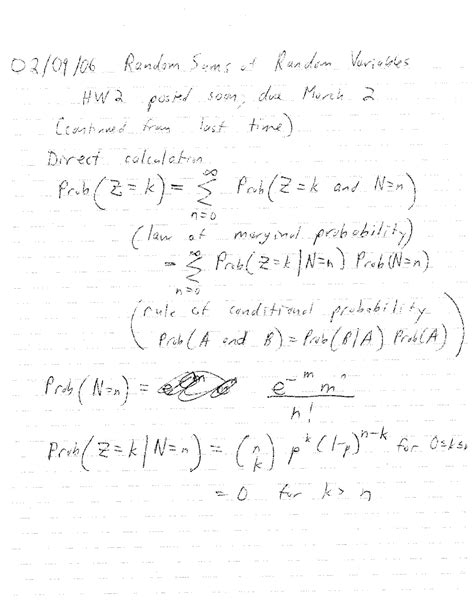 02/09/06 Random Sums of Random Variables
HW2 posted soon, due March 2
(continued from last time)
Direct calculation
Prob(Z=k) = ∑_{n=0}^{∞} Prob(Z=k and N=n)
(law of marginal probability)
= ∑_{n=0}^{∞} Prob(Z=k|N=n) Prob(N=n)
(rule of conditional probability
Prob(A and B) = Prob(B|A) Prob(A))
Prob(N=n) = e^{-m} m^n / n!
Prob(Z=k|N=n) = (n k) p^k (1-p)^{n-k} for 0≤k≤n
= 0 for k > n